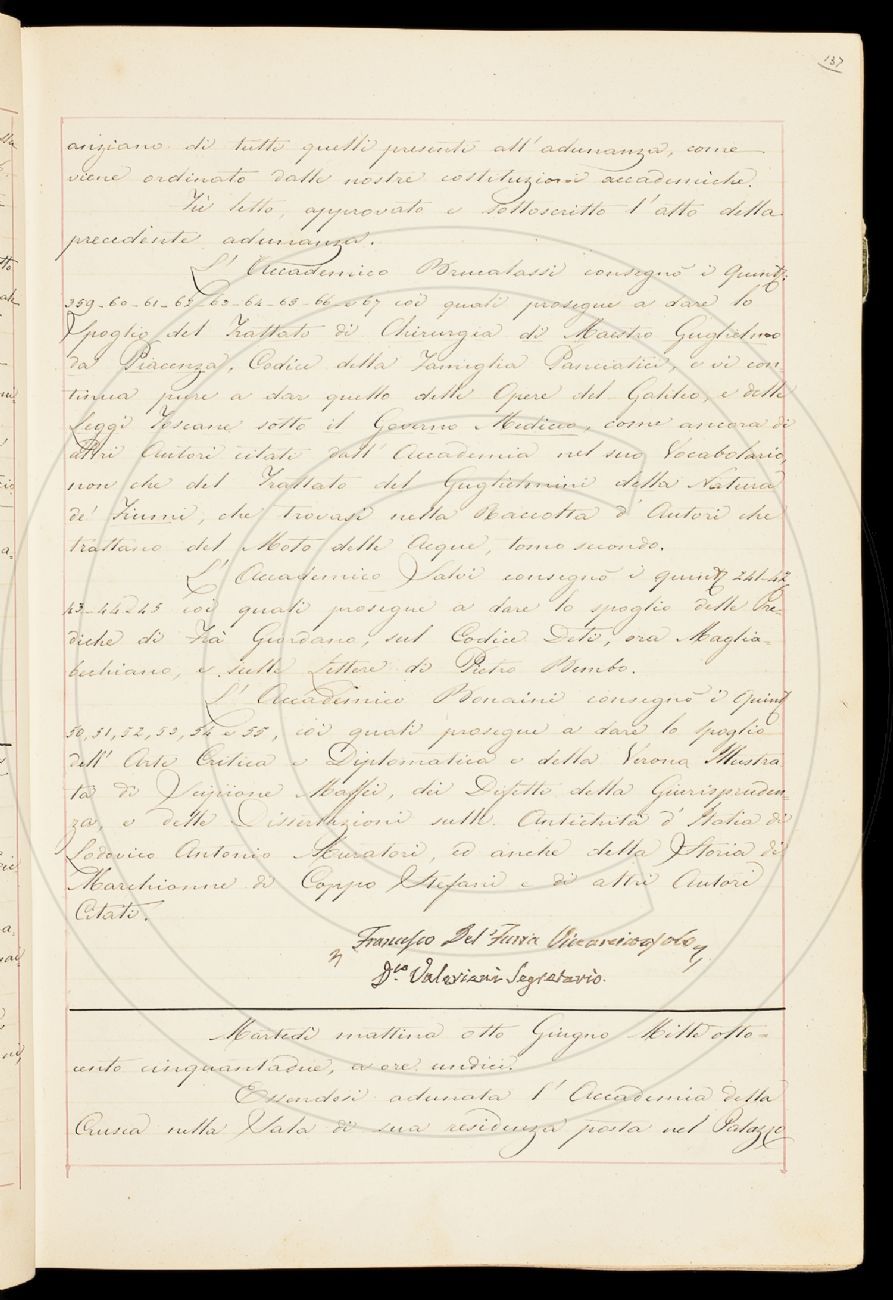 137
anziano di tutti quelli presenti all'adunanza, come
viene ordinato dalle nostre costituzioni accademiche.
Fù letto, approvato e sottoscritto l'atto della
precedente adunanza.
L'Accademico Brucalassi consegnò i quint.
359-60-61-62-63-64-65-66 e 67 coi quali prosegue a dare lo
Spoglio del Trattato di Chirurgia di Maestro Guglielmo
da Piacenza, Codice della Famiglia Panciatici, e vi con
tinua pure a dar quello delle Opere del Galileo, e delle
Leggi Toscane sotto il Governo Mediceo, come ancora di
altri Autori citati dall'Accademia nel suo Vocabolario,
non che del Trattato del Guglielmini della Natura
de' Fiumi, che trovasi nella Raccolta d'Autori che
trattano del Moto delle Acque, tomo secondo.
L'Accademico Salvi consegnò i quint. 241-42
43-44-45 coi quali prosegue a dare lo spoglio delle Pre-
diche di Frà Giordano, sul Codice Deti, ora Maglia-
bechiano, e sulle Lettere di Pietro Bembo.
L'Accademico Bonaini consegnò i quint.
50, 51, 52, 53, 54 e 55, coi quali prosegue a dare lo spoglio
dell'Arte Critica e Diplomatica e della Verona Illustra
ta di Scipione Maffei, dei Difetti della Giurispruden-
za, e delle Dissertazioni sulle Antichità d'Italia di
Lodovico Antonio Muratori, ed anche della Storia di
Marchionne di Coppo Stefani e di altri Autori
Citati.
Francesco Del Furia Vicearciconsolo
D.co Valeriani Segretario.
Martedì mattina otto Giugno Mille otto-
cento cinquantadue, a ore undici.
Essendosi adunata l'Accademia della
Crusca nella Sala di sua residenza posta nel Palazzo